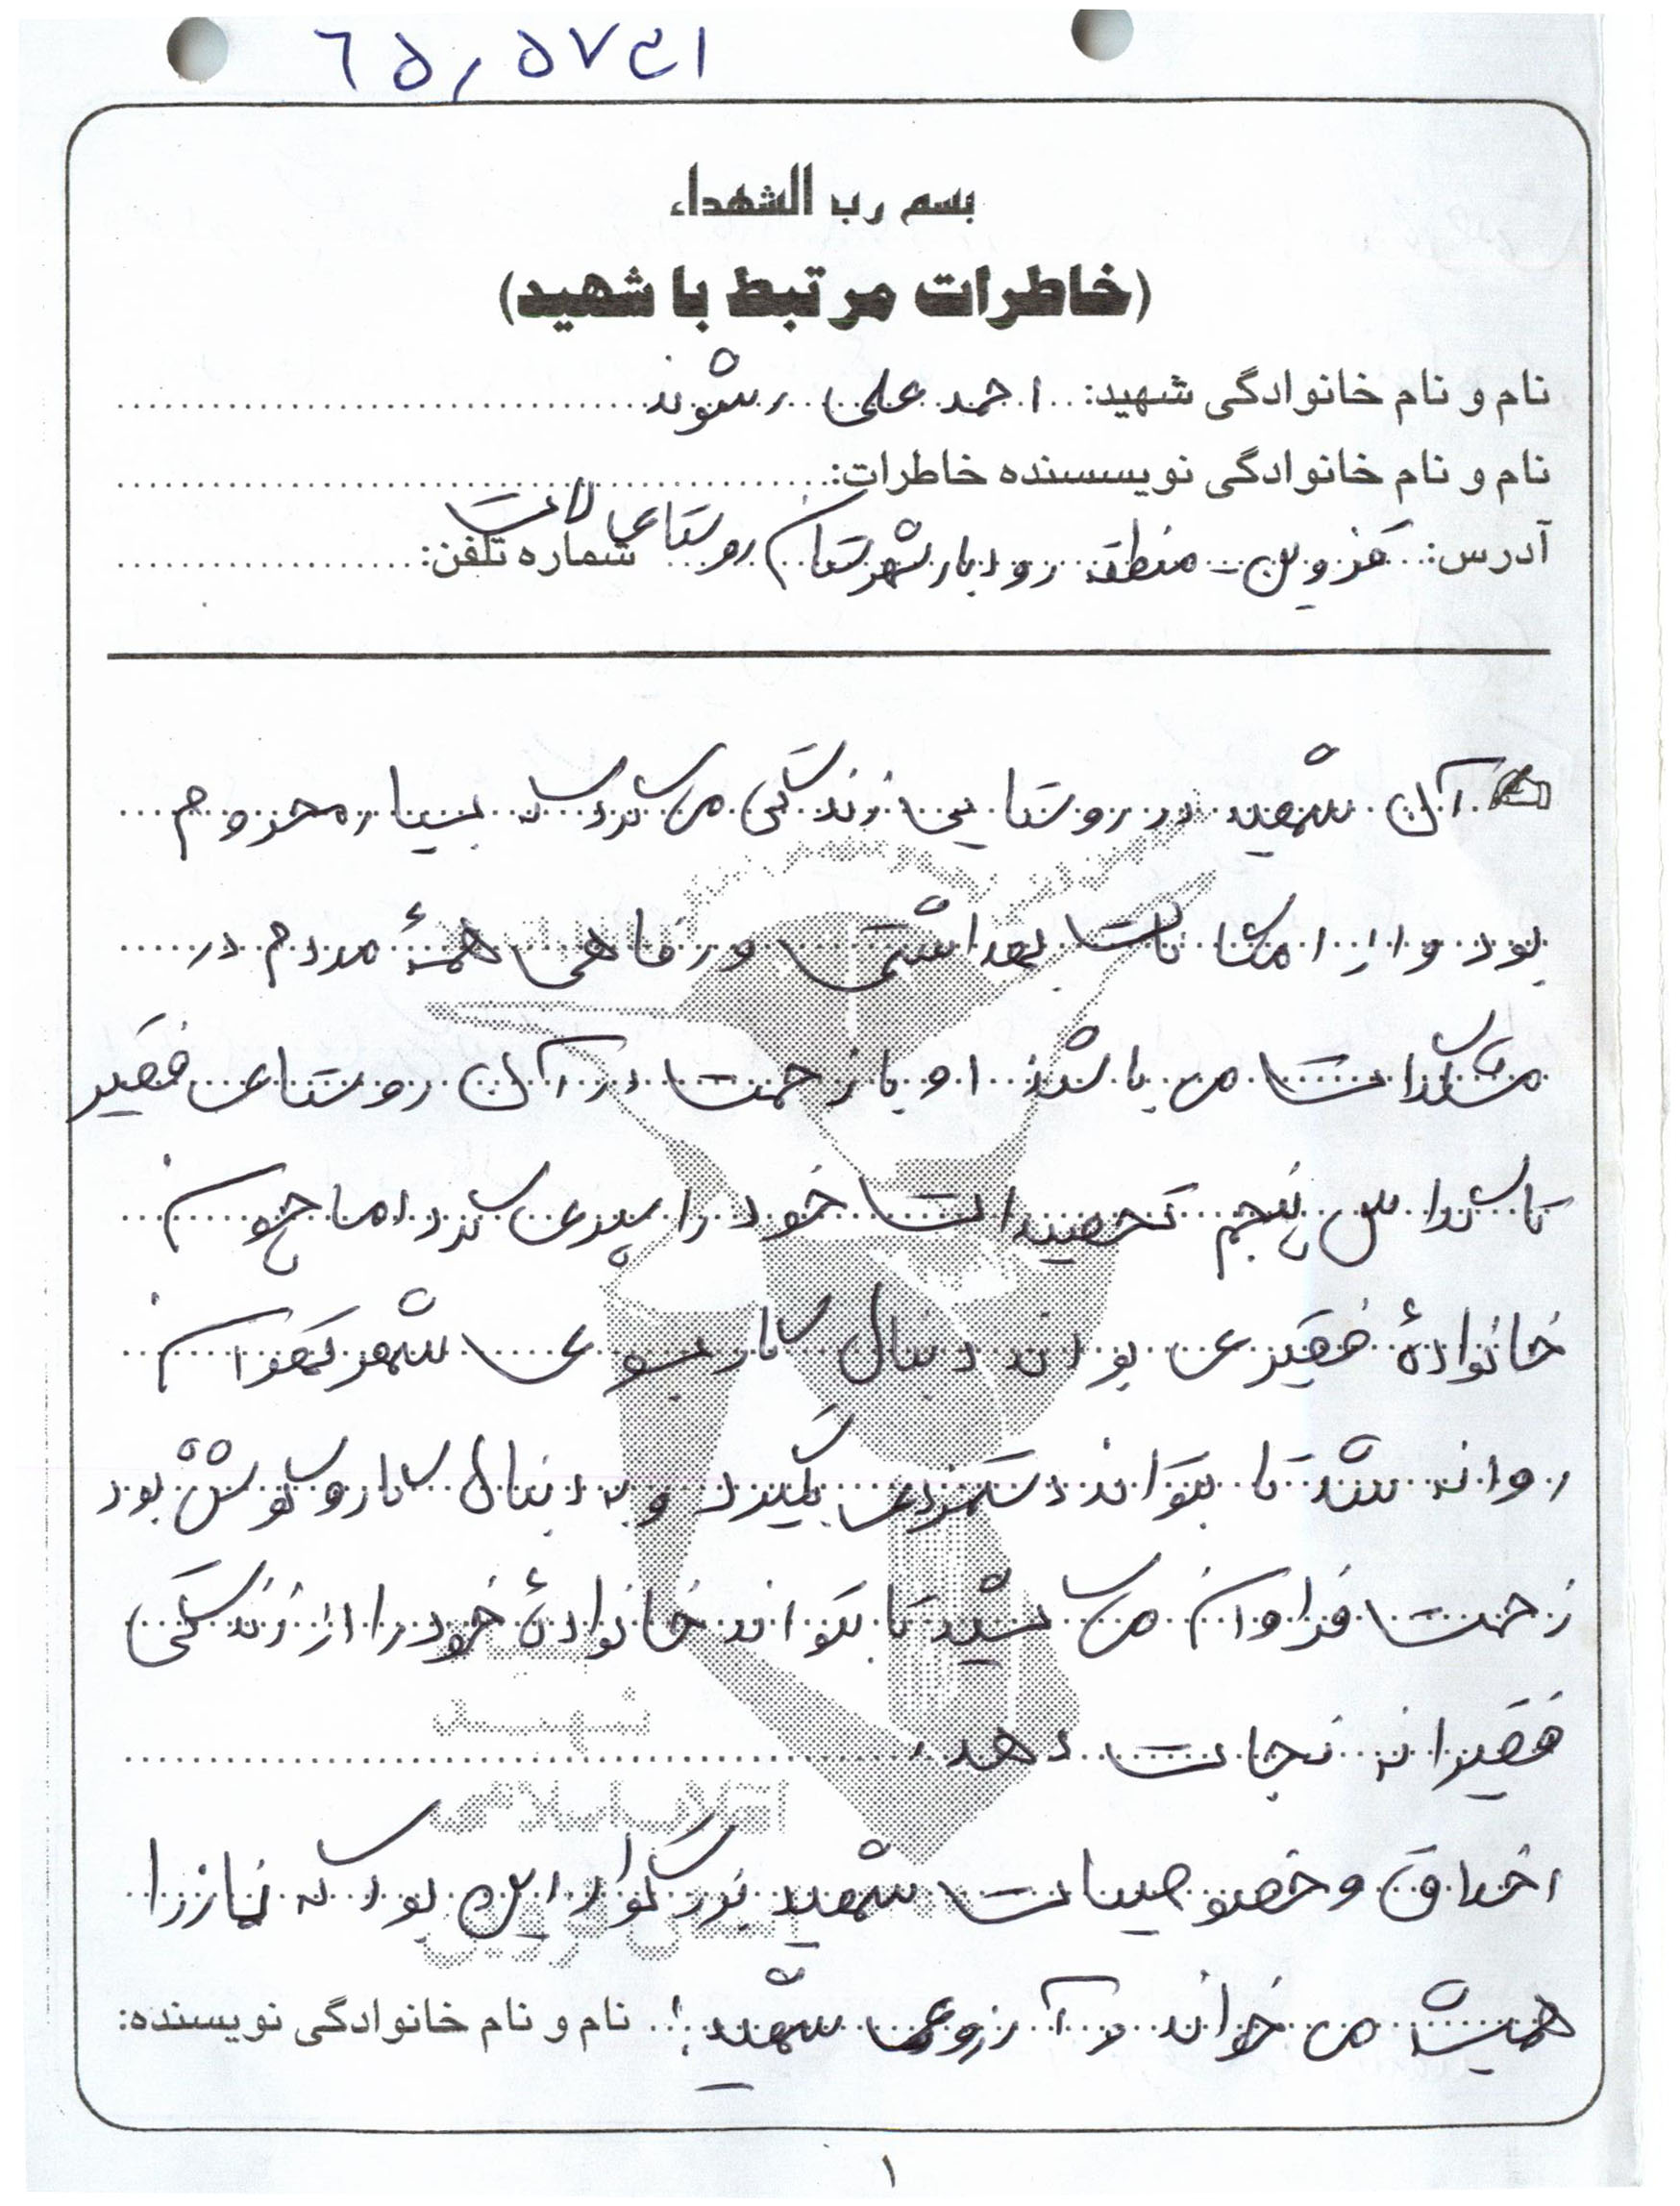 بسم رب الشهداء
(خاطرات مرتبط با شهید)
نام و نام خانوادگی شهید: احمد علی رشوند
نام و نام خانوادگی نویسسنده خاطرات:
آدرس: قزوین - منطقه رودبار شهرستان روستای شماره تلفن:
آن شهید در روستایی زندگی می کرد که بسیار محروم
بود و از امکانات بهداشتی و رفاهی همهٔ مردم در
مشکلات می باشند او با زحمت در آن روستای فقیر
تا کلاس پنجم تحصیلات خود را سپری کرد اما چون
خانوادهٔ فقیری بودند دنبال کار بسوی شهر تهران
روانه شد تا بتواند دستمزدی بگیرد و به دنبال کار و کوشش بود
زحمت فراوان می کشید تا بتواند خانوادهٔ خود را از زندگی
فقیرانه نجات دهد.
اخلاق و خصوصیات شهید بزرگوار این بود که نماز را
همیشه می خواند و آرزوی شهید: نام و نام خانوادگی نویسنده:
شهید
انقلاب اسلامی
استان قزوین
۱